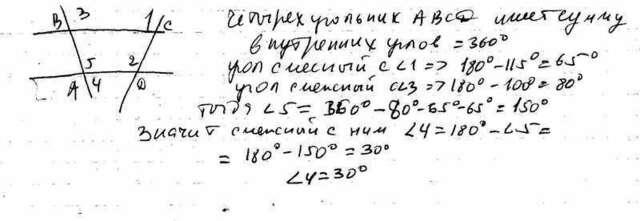 B 3 1 C
5 2
A 4 D
Четырехугольник ABCD имеет сумму
внутренних углов = 360°
угол смежный с ∠1 => 180° - 115° = 65°
угол смежный с ∠3 => 180° - 100° = 80°
тогда ∠5 = 360° - 80° - 65° - 65° = 150°
Значит смежный с ним ∠4 = 180° - ∠5 =
= 180° - 150° = 30°
∠4 = 30°